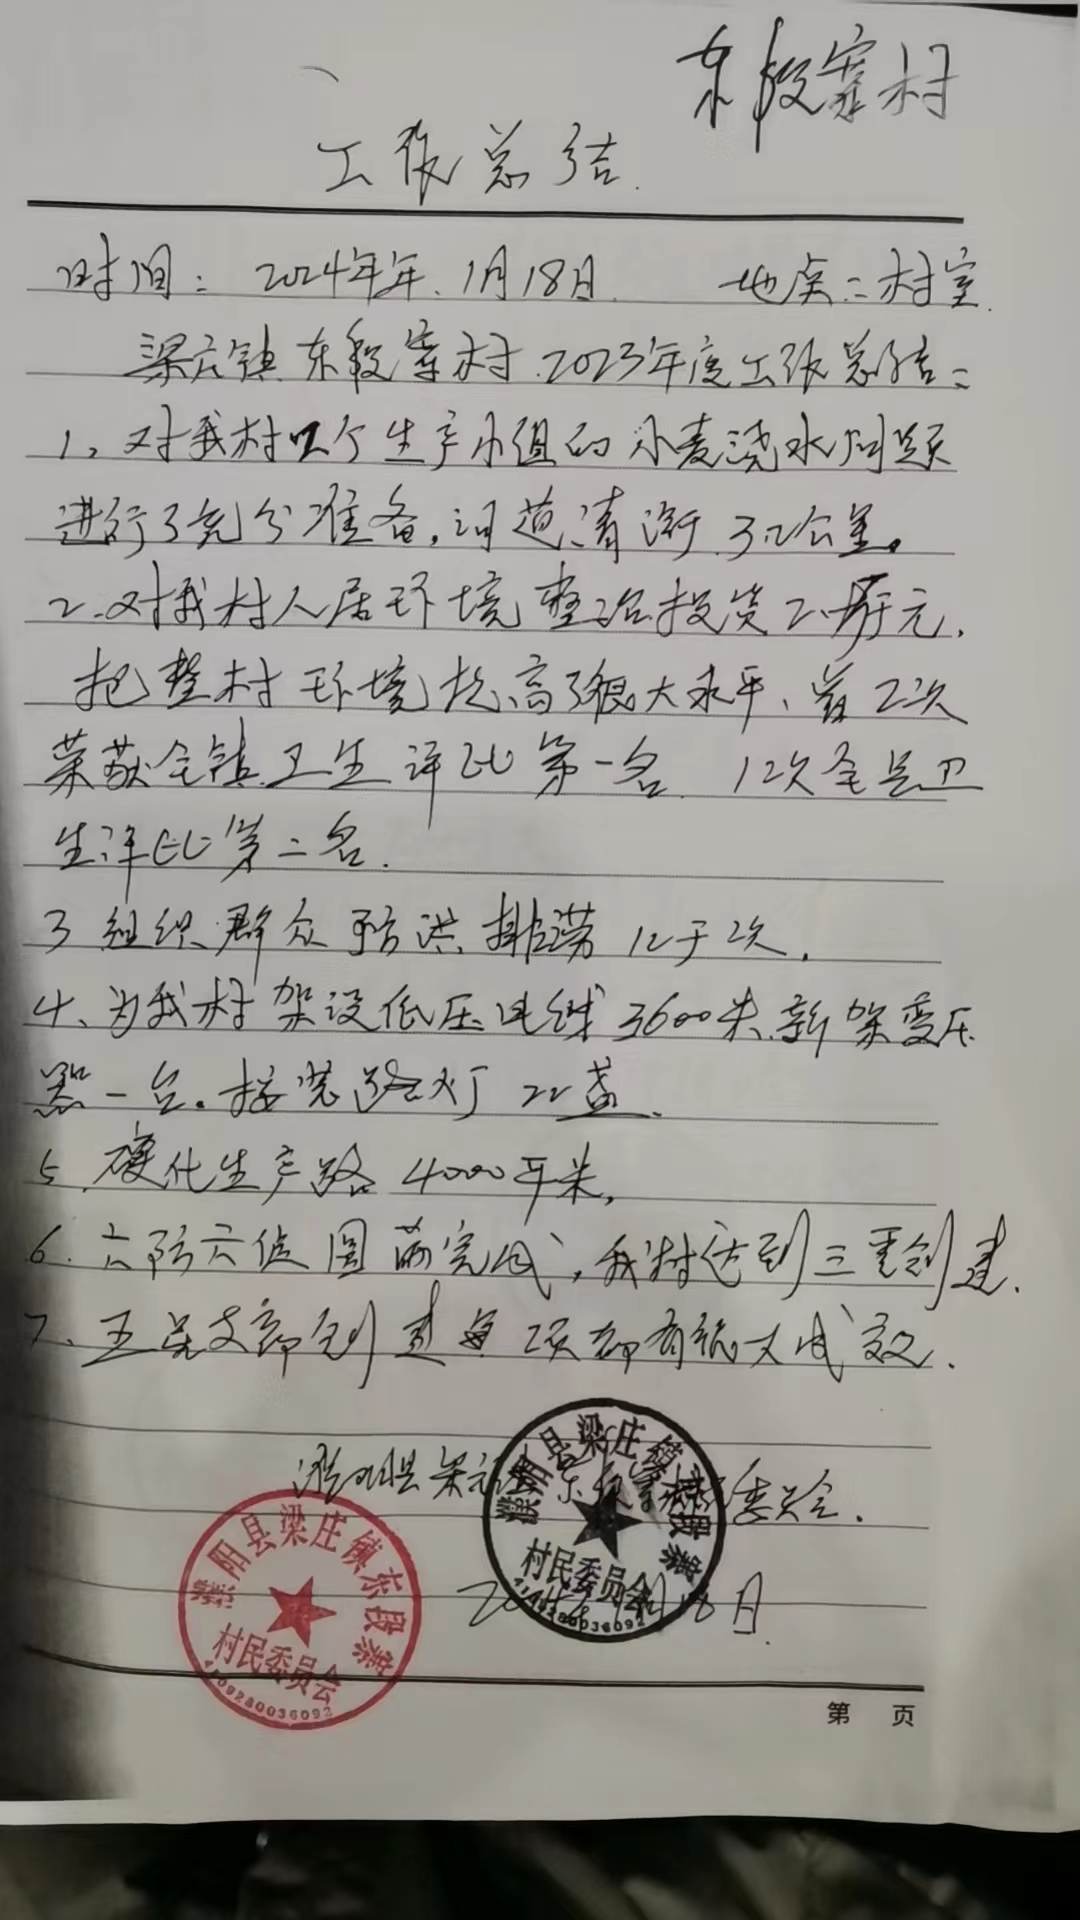 东段寨村
工作总结
时间：2024年年.1月18日 地点：村室
梁庄镇东段寨村2023年度工作总结：
1、对我村四个生产小组的小麦浇水问题
进行了充分准备,河道清淤3.2公里。
2.对我村人居环境整治投资2.万元,
把整村环境提高了很大水平、曾2次
荣获全镇卫生评比第一名.12次全县卫
生评比第二名.
3组织群众预防洪排涝12于次.
4、为我村架设低压电线3600米.新架变压
器一台.接装路灯22盏.
5.硬化生产路4000平米,
6.六防六促圆满完成,我村达到三零创建.
7、五星支部创建每项都有很大成效.
濮阳县梁庄镇东段寨村民委员会.
20 18日
濮阳县梁庄镇东段寨
村民委员会
4109280036092
濮阳县梁庄镇东段寨
村民委员会
4109280036092
第 页